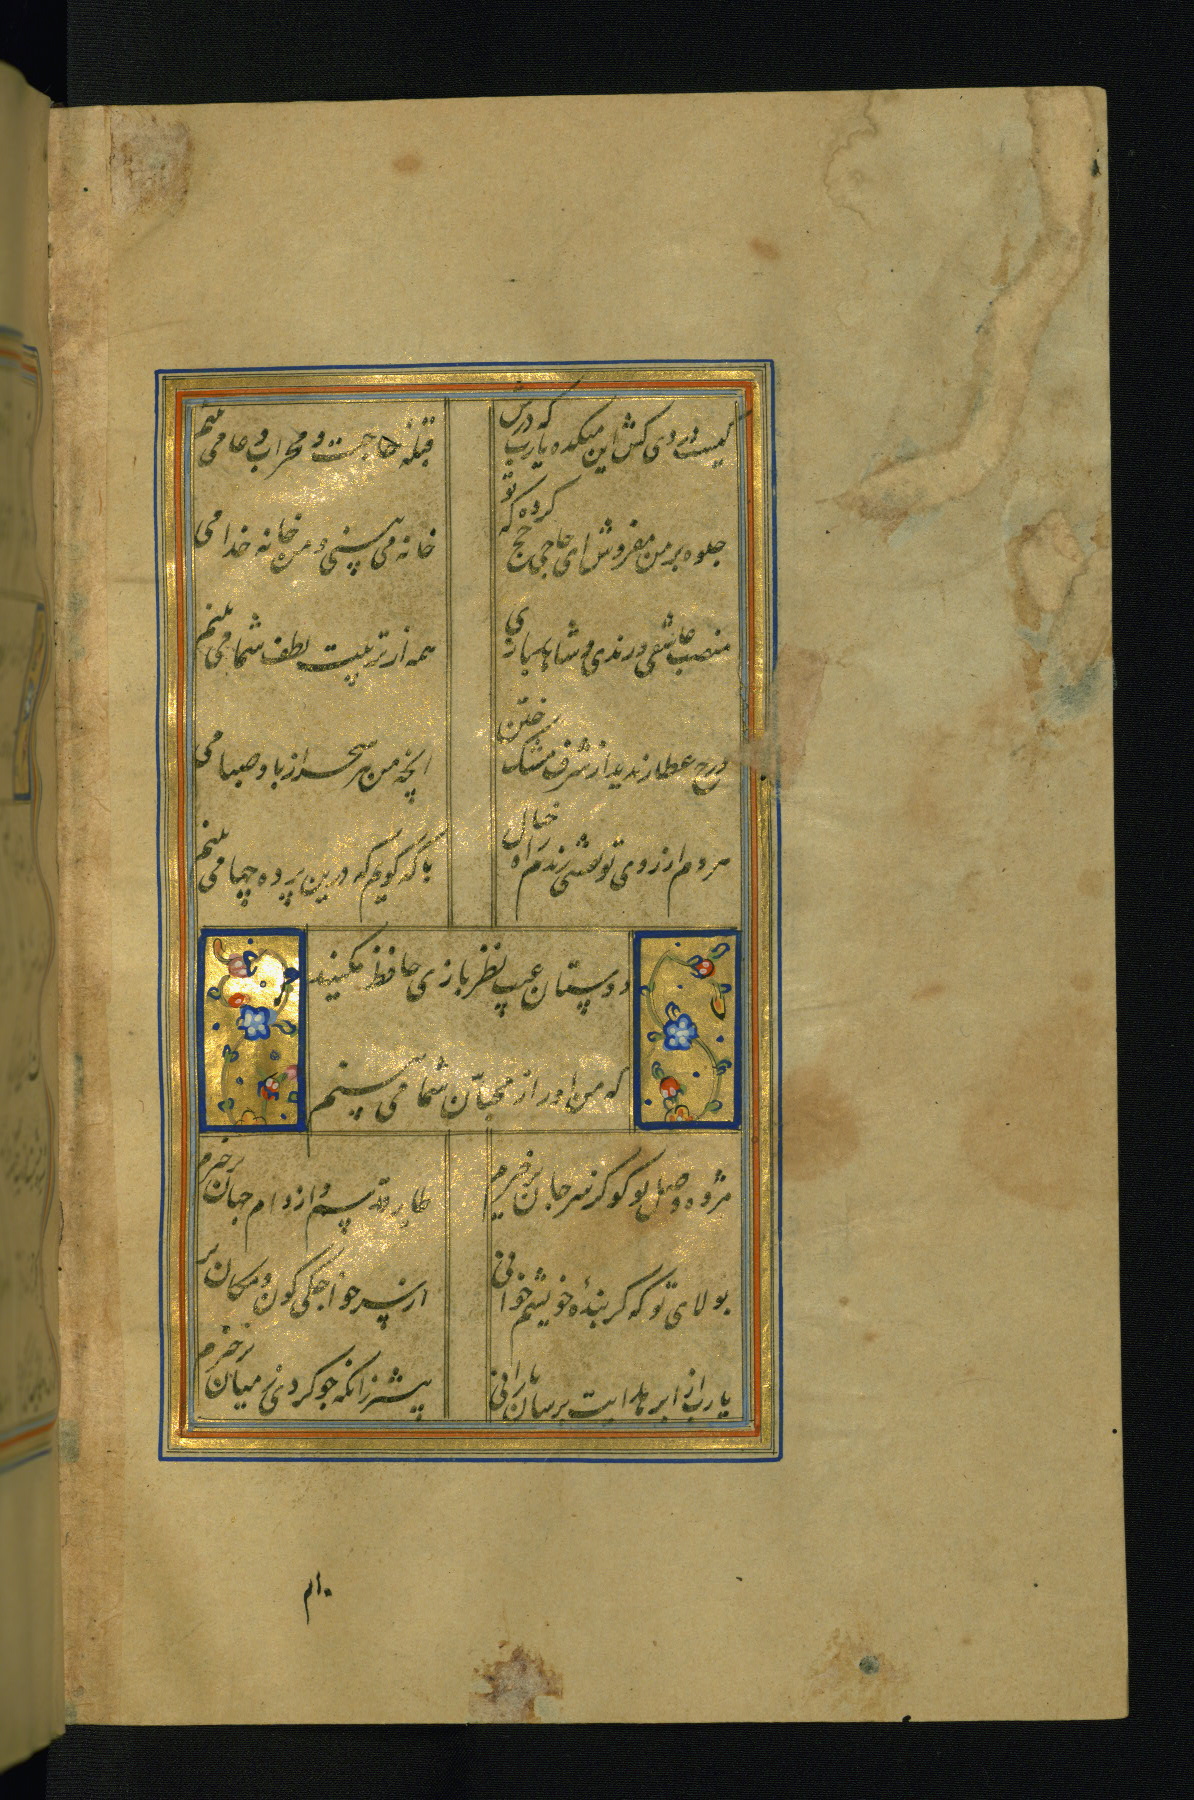 کیست دردی کش این میکده یارب که درش
قبله حاجت و محراب دعا می بینم
جلوه بر من مفروش ای حاجی حج کرده که تو
خانه می بینی و من خانه خدا می
منصب عاشقی و رندی و شاهد بازی
همه از تربیت لطف شما می بینم
عطار ندید از شرف مشک ختن
انچه من هر سحر از باد صبا می
هر دم از روی تو نقشی زندم راه خیال
با که گویم که درین پرده چها می بینم
دوستان عیب نظر بازی حافظ مکنید
که من او را از محبان شما می بینم
مژده وصل تو کو کز سر جان برخیزم
طایر قدسم و از دام جهان برخیزم
بولای تو که گر بنده خویشم خوانی
از سر خواجگی کون و مکان بر
یارب از ابر هدایت برسان بارانی
پیشتر زانکه چو گردی ز میان برخیزم